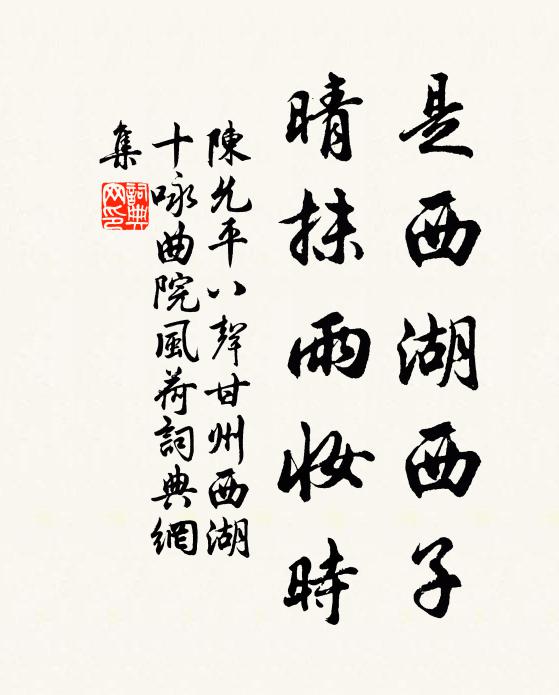 是西湖西子
晴抹雨妝時
陳允平八聲甘州西湖
十咏曲院風荷詞典網
集
詞典
网印